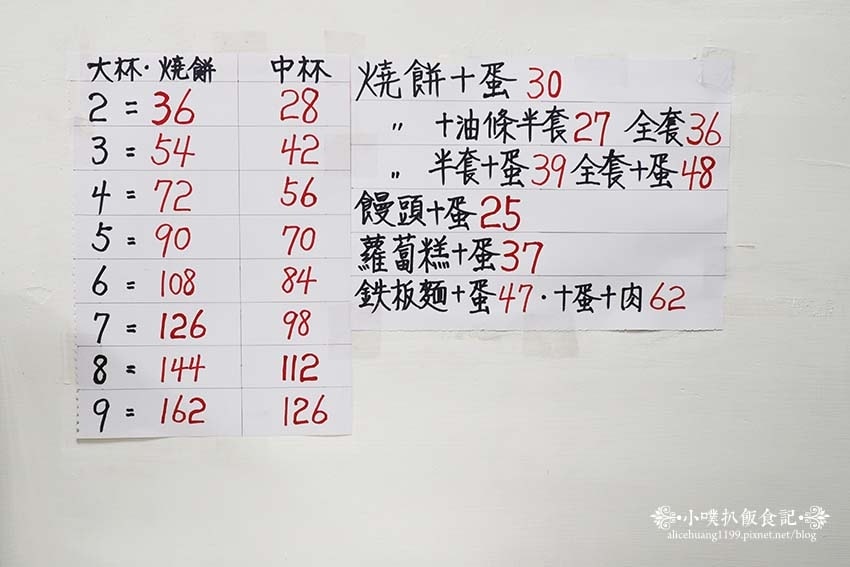 大杯·燒餅 中杯
2 = 36 28
3 = 54 42
4 = 72 56
5 = 90 70
6 = 108 84
7 = 126 98
8 = 144 112
9 = 162 126
燒餅+蛋 30
〃 +油條半套27 全套36
〃 半套+蛋39 全套+蛋48
饅頭+蛋25
蘿蔔糕+蛋37
鉄板麵+蛋47·+蛋+肉62
小噗扒飯食記
alicehuang1199.pixnet.net/blog